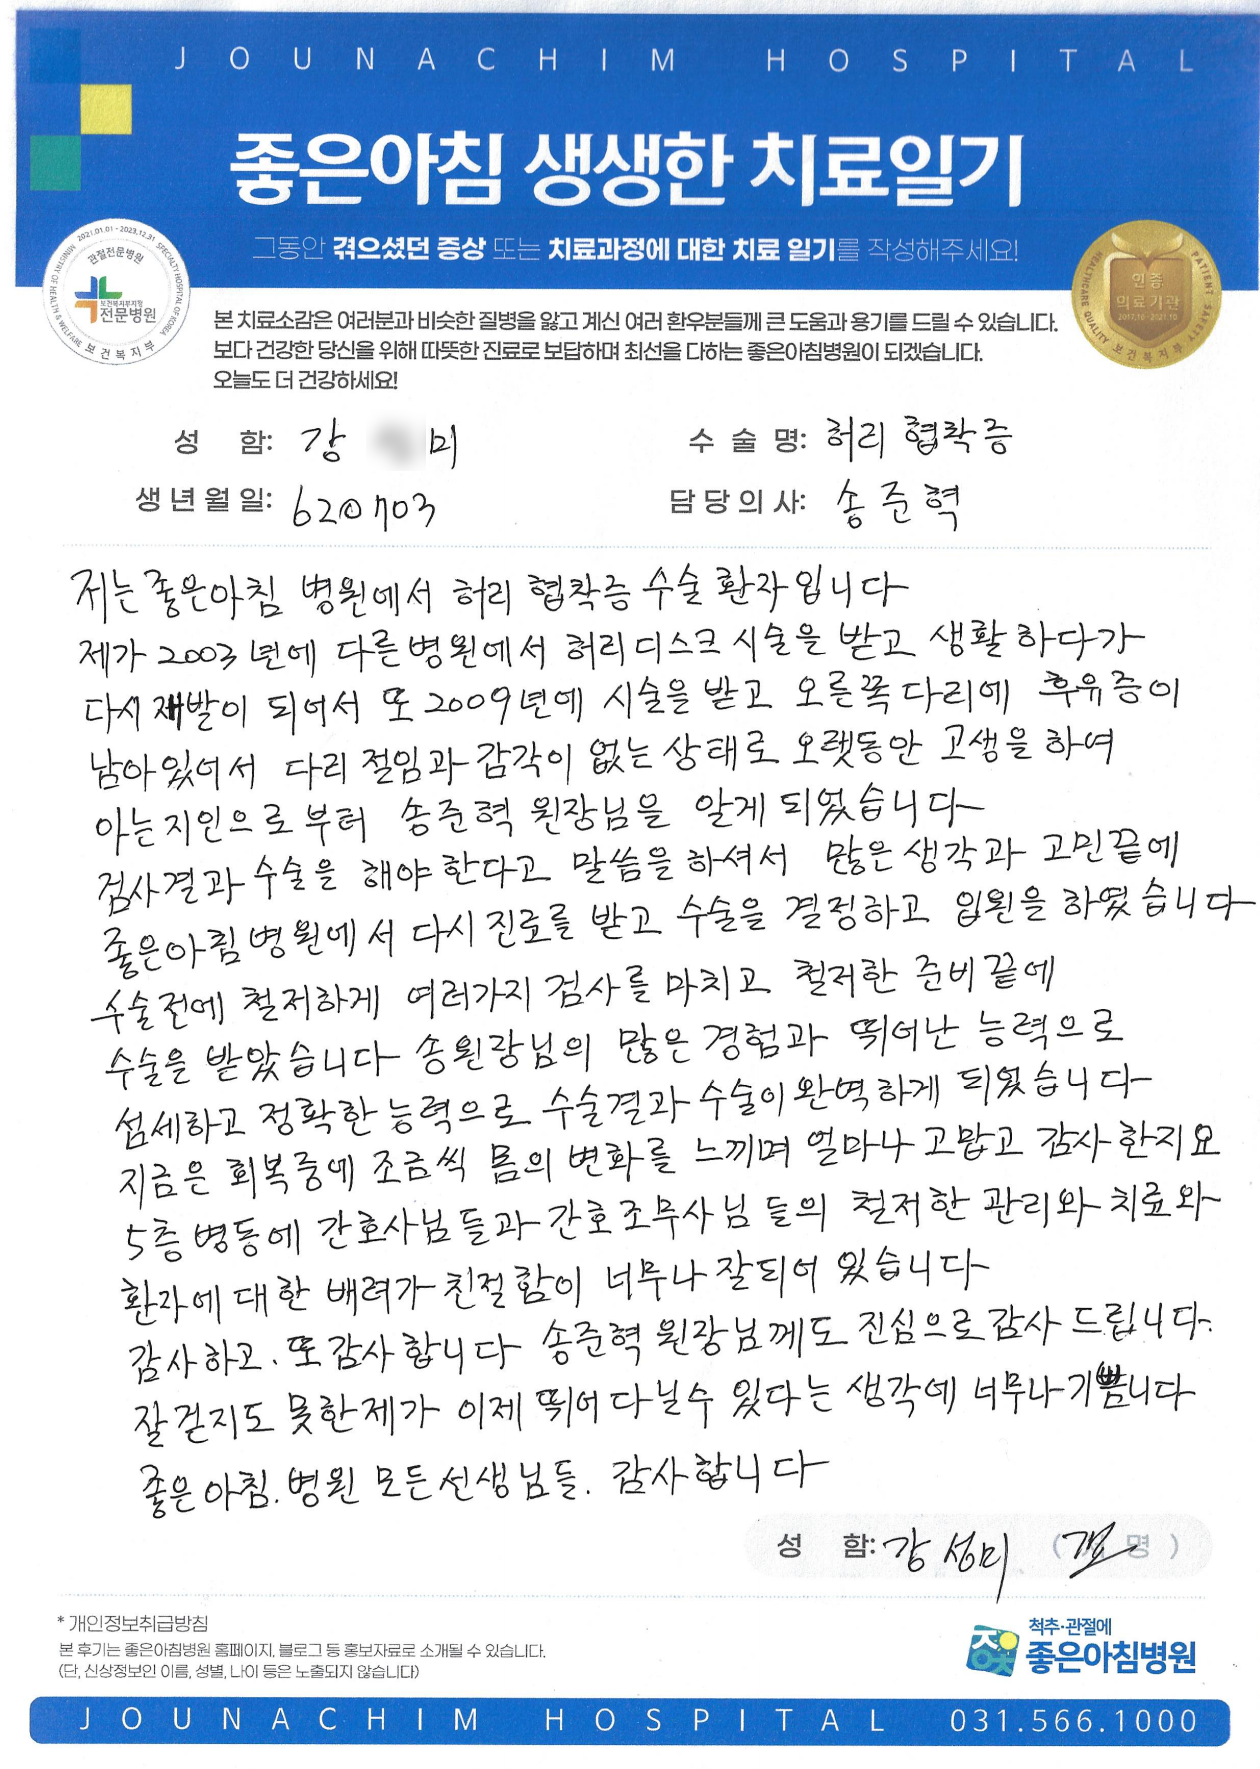 JOUNACHIM HOSPITAL
좋은아침 생생한 치료일기
그동안 겪으셨던 증상 또는 치료과정에 대한 치료 일기를 작성해주세요!
2021.01.01 - 2023.12.31 SPECIALTY HOSPITAL OF KOREA
MINISTRY OF HEALTH & WELFARE 보건복지부
관절전문병원
보건복지부지정
전문병원
HEALTHCARE QUALITY 보건복지부 PATIENT SAFETY
인증
의료기관
2017.10 - 2021.10
본 치료소감은 여러분과 비슷한 질병을 앓고 계신 여러 환우분들께 큰 도움과 용기를 드릴 수 있습니다.
보다 건강한 당신을 위해 따뜻한 진료로 보답하며 최선을 다하는 좋은아침병원이 되겠습니다.
오늘도 더 건강하세요!
성 함: 강 미
수 술 명: 허리 협착증
생년월일: 620703
담당의사: 송준혁
저는 좋은아침 병원에서 허리 협착증 수술 환자입니다
제가 2003년에 다른병원에서 허리디스크 시술을 받고 생활하다가
다시 재발이 되어서 또 2009년에 시술을 받고 오른쪽다리에 후유증이
남아있어서 다리 절임과 감각이 없는 상태로 오랫동안 고생을 하여
아는지인으로 부터 송준혁 원장님을 알게 되었습니다
검사결과 수술을 해야 한다고 말씀을 하셔서 많은생각과 고민끝에
좋은아침병원에서 다시 진료를 받고 수술을 결정하고 입원을 하였습니다
수술전에 철저하게 여러가지 검사를 마치고 철저한 준비끝에
수술을 받았습니다 송원장님의 많은 경험과 뛰어난 능력으로
섬세하고 정확한 능력으로 수술결과 수술이 완벽하게 되었습니다
지금은 회복중에 조금씩 몸의 변화를 느끼며 얼마나 고맙고 감사한지요
5층 병동에 간호사님들과 간호조무사님들의 철저한 관리와 치료와
환자에 대한 배려가 친절함이 너무나 잘되어 있습니다
감사하고. 또감사합니다 송준혁 원장님께도 진심으로 감사 드립니다.
잘걷지도 못한제가 이제 뛰어 다닐수 있다는 생각에 너무나기쁩니다
좋은아침. 병원 모든선생님들. 감사합니다
성 함: 강성미 ( 명 )
* 개인정보취급방침
본 후기는 좋은아침병원 홈페이지, 블로그 등 홍보자료로 소개될 수 있습니다.
(단, 신상정보인 이름, 성별, 나이 등은 노출되지 않습니다)
척추·관절에
좋은아침병원
JOUNACHIM HOSPITAL 031.566.1000